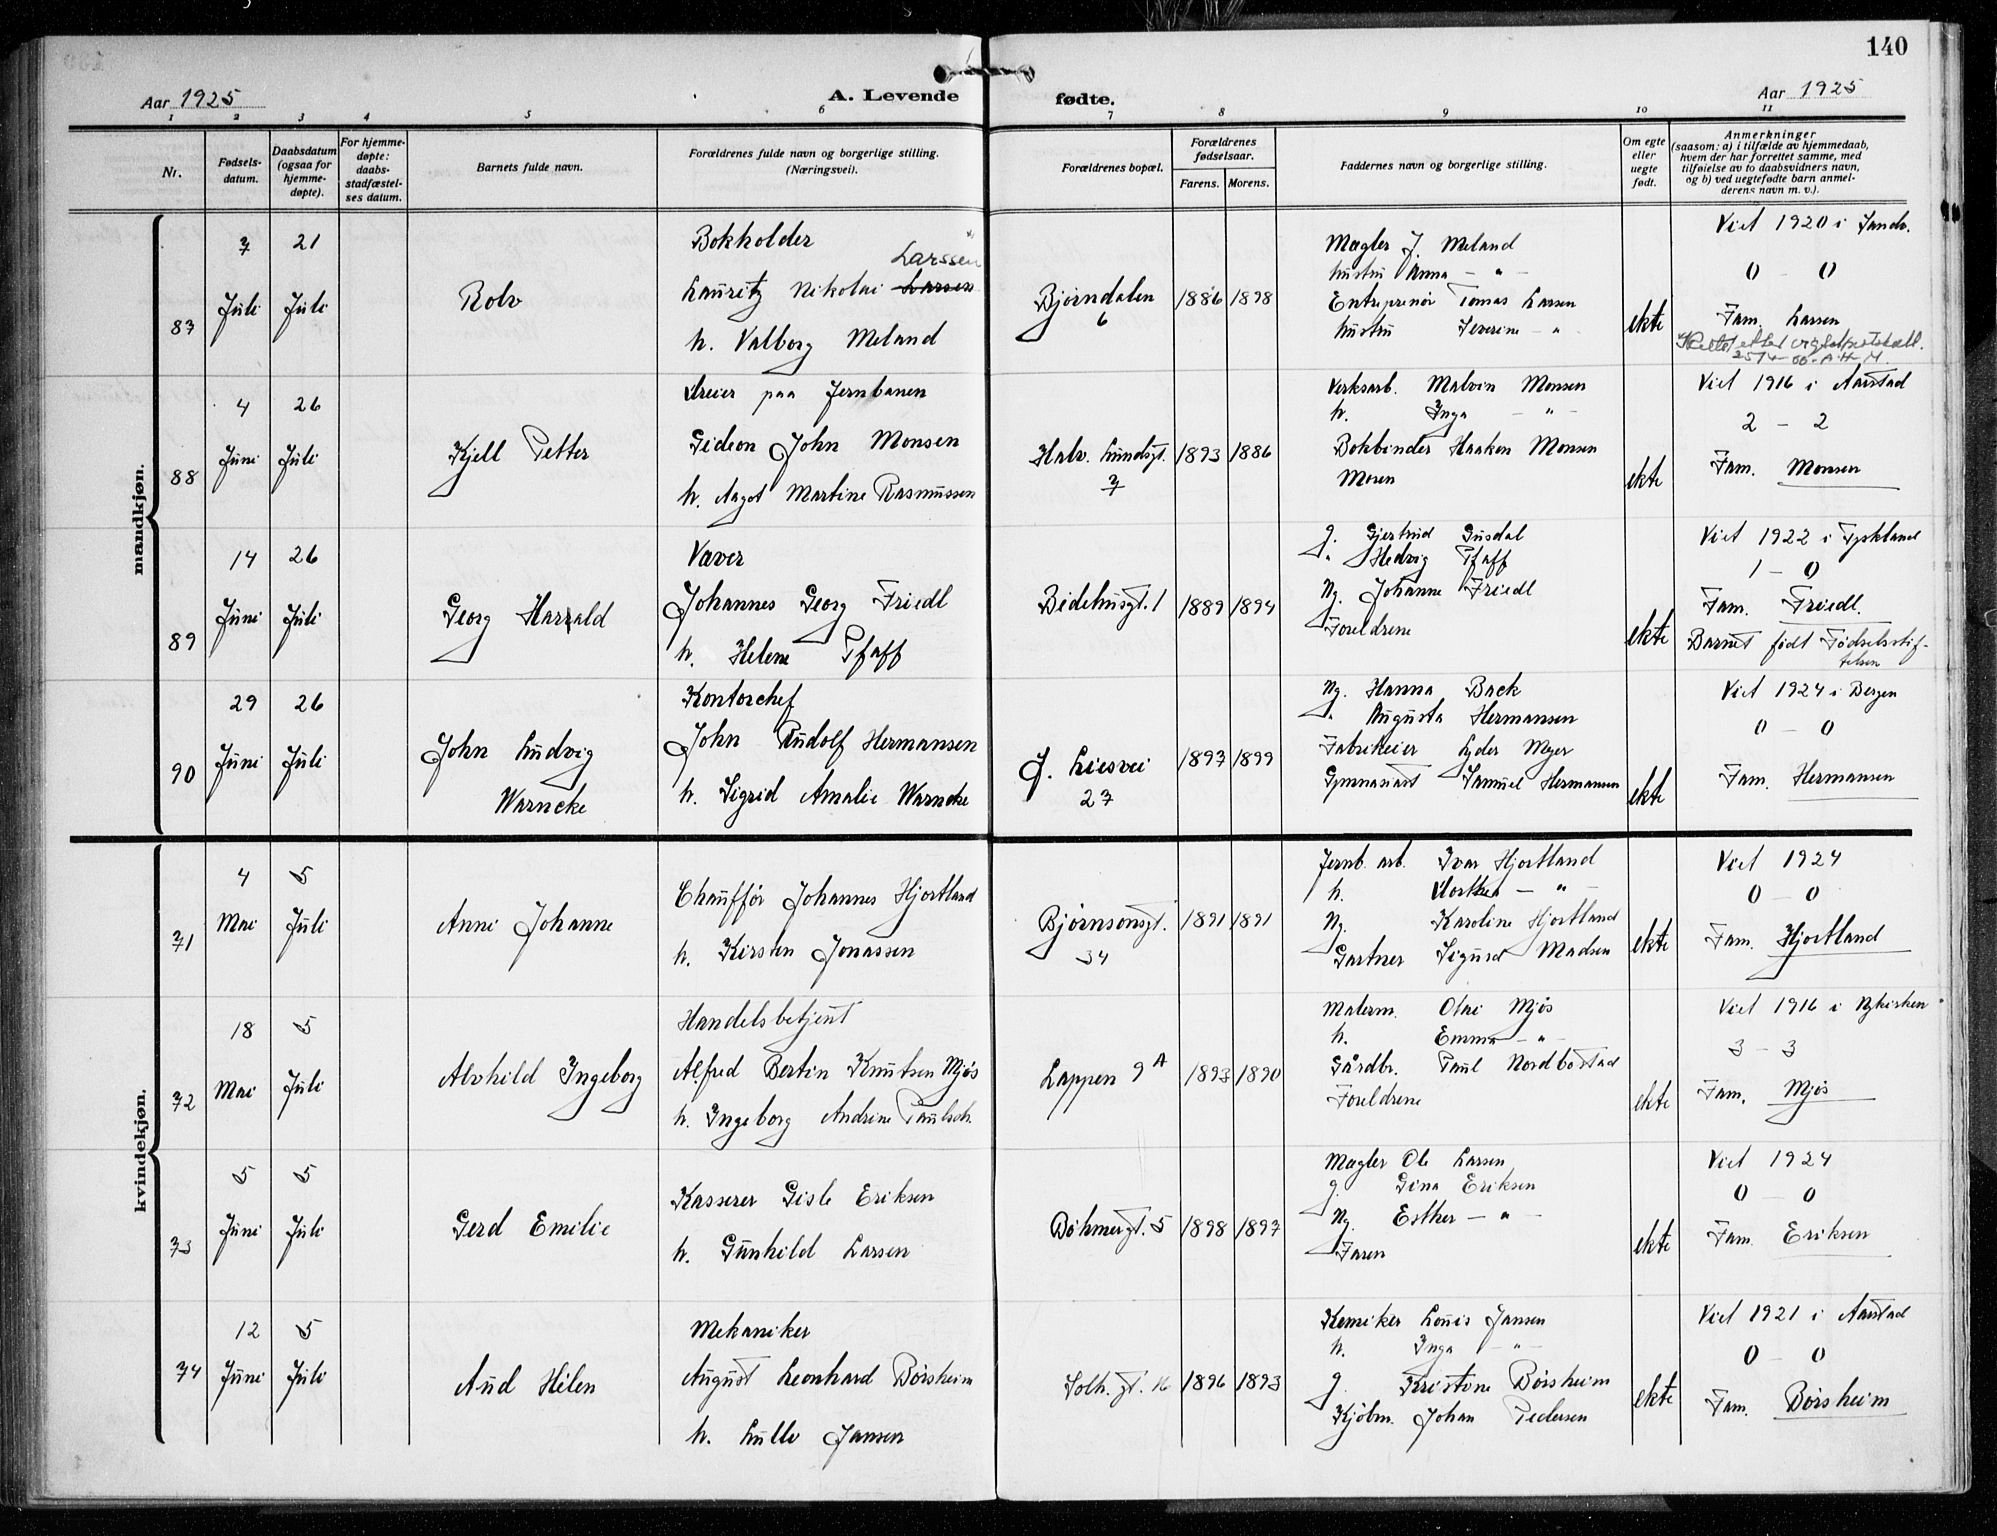 140
Aar 1925
A. Levende
fødte.
Aar 1925
1 2 3 4 5 6 7 8 9 10 11
Nr.
Fødsels-
datum.
Daabsdatum
(ogsaa for
hjemme-
døpte).
For hjemme-
døpte:
daabs-
stadfæstel-
ses datum.
Barnets fulde navn.
Forældrenes fulde navn og borgerlige stilling.
(Næringsvei).
Forældrenes bopæl.
Forældrenes
fødselsaar.
Farens. Morens.
Faddernes navn og borgerlige stilling.
Om egte
eller
uegte
født.
Anmerkninger
(saasom: a) i tilfælde av hjemmedaab,
hvem der har forrettet samme, med
tilføielse av to daabsvidners navn,
og b) ved uegtefødte barn anmel-
derens navn m. v.).
mandkjøn.
87
7
Juli
21
Juli
Rolv
Bokholder
Larssen
Lauritz Nikolai Larsen
h. Valborg Meland
Bjørndalen
6
1886 1898
Mægler J. Meland
hustru Anna - " -
Entreprenør Tomas Larsen
hustru Severine - "
ekte
Viet 1920 i Sandv.
0 - 0
Fam. Larsen
88
4
Juni
26
Juli
Kjell Petter
Dreier paa Jernbanen
Gideon John Monsen
h. Aagot Martine Rasmussen
Halv. Lundsgt.
7
1893 1886
Verksarb. Malvin Monsen
h. Inga - " -
Bokbinder Haaken Monsen
Moren
ekte
Viet 1916 i Aarstad
2 - 2
Fam. Monsen
89
14
Juni
26
Juli
Georg Harald
Væver
Johannes Georg Friedl
h. Helene Pfaff
Bedehusgt. 1
1889 1894
g. Gjertrud Gusdal
" Hedvig Pfaff
Ng. Johanne Friedl
Foreldrene
ekte
Viet 1922 i Tyskland
1 - 0
Fam. Friedl.
Barnet født Fødselsstif-
telsen
90
29
Juni
26
Juli
John Ludvig
Warncke
Kontorchef
John Rudolf Hermansen
h. Sigrid Amalie Warncke
J. Liesvei
27
1897 1899
Ng. Hanna Back
" Augusta Hermansen
Fabrikeier Lyder Meyer
Gymnasiast Samuel Hermansen
ekte
Viet 1924 i Bergen
0 - 0
Fam. Hermansen
kvindekjøn.
71
4
Mai
5
Juli
Anni Johanne
Chauffør Johannes Hjortland
h. Kirsten Jonassen
Bjørnsonsgt.
34
1891 1891
Jernb. arb. Ivar Hjortland
h. Dorthea - " -
Ng. Karoline Hjortland
Gartner Sigurd Madsen
ekte
Viet 1924
0 - 0
Fam. Hjortland
72
18
Mai
5
Juli
Alvhild Ingeborg
Handelsbetjent
Alfred Bertin Knutsen Mjøs
h. Ingeborg Andrine Paulsdt.
Lappen 9 A
1893 1890
Malerm. Olai Mjøs
h. Emma - " -
Gårdbr. Paul Nordbøstad
Foreldrene
ekte
Viet 1916 i Nykirken
3 - 3
Fam. Mjøs
73
5
Juni
5
Juli
Gerd Emilie
Kasserer Gisle Eriksen
h. Gunhild Larsen
Bøhmergt. 5
1898 1897
Mægler Ole Larsen
g. Gina Eriksen
Ng. Esther - " -
Faren
ekte
Viet 1924
0 - 0
Fam. Eriksen
74
12
Juni
5
Juli
Aud Helen
Mekaniker
August Leonhard Børsheim
h. Lully Jansen
Solh. gt. 16
1896 1893
Kemiker Louis Jansen
h. Inga - " -
g. Kristine Børsheim
Kjøbm. Johan Pedersen
ekte
Viet 1921 i Aarstad
0 - 0
Fam. Børsheim